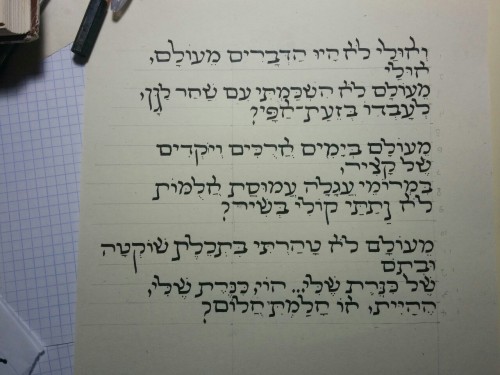 וְאוּלַי לֹא הָיוּ הַדְּבָרִים מֵעוֹלָם,
אוּלַי
מֵעוֹלָם לֹא הִשְׁכַּמְתִּי עִם שַׁחַר לַגָּן,
לְעָבְדוֹ בְּזֵעַת־אַפָּי?
מֵעוֹלָם בְּיָמִים אֲרֻכִּים וִיּוֹקְדִים
שֶׁל קָצִיר,
בִּמְרוֹמֵי עֲגָלָה עֲמוּסַת אֲלֻמּוֹת
לֹא נָתַתִּי קוֹלִי בְּשִׁיר?
מֵעוֹלָם לֹא טָהַרְתִּי בִּתְכֵלֶת שׁוֹקְטָה
וּבְתֹם
שֶׁל כִּנֶּרֶת שֶׁלִּי... הוֹי, כִּנֶּרֶת שֶׁלִּי,
הֶהָיִית, אוֹ חָלַמְתִּי חֲלוֹם?